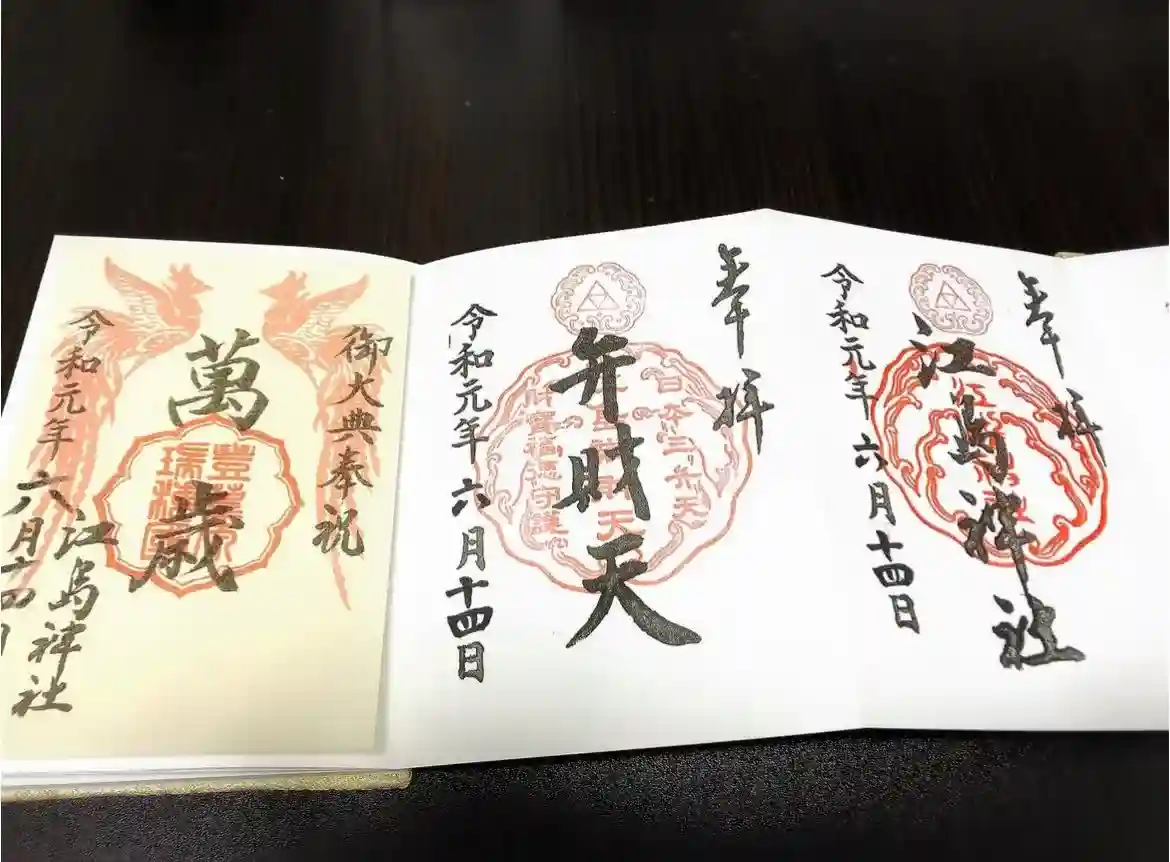 奉拝
江島神社
令和元年六月十四日
奉拝
日本三弁天
弁財天
財寳福徳守護
令和元年六月十四日
御大典奉祝
萬歳
江島神社
令和元年六月十四日